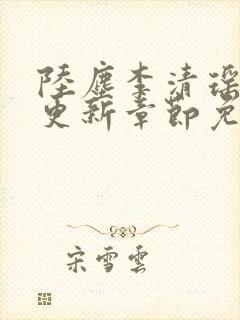 陸塵李清瑤
更新章節免
宋雪雲